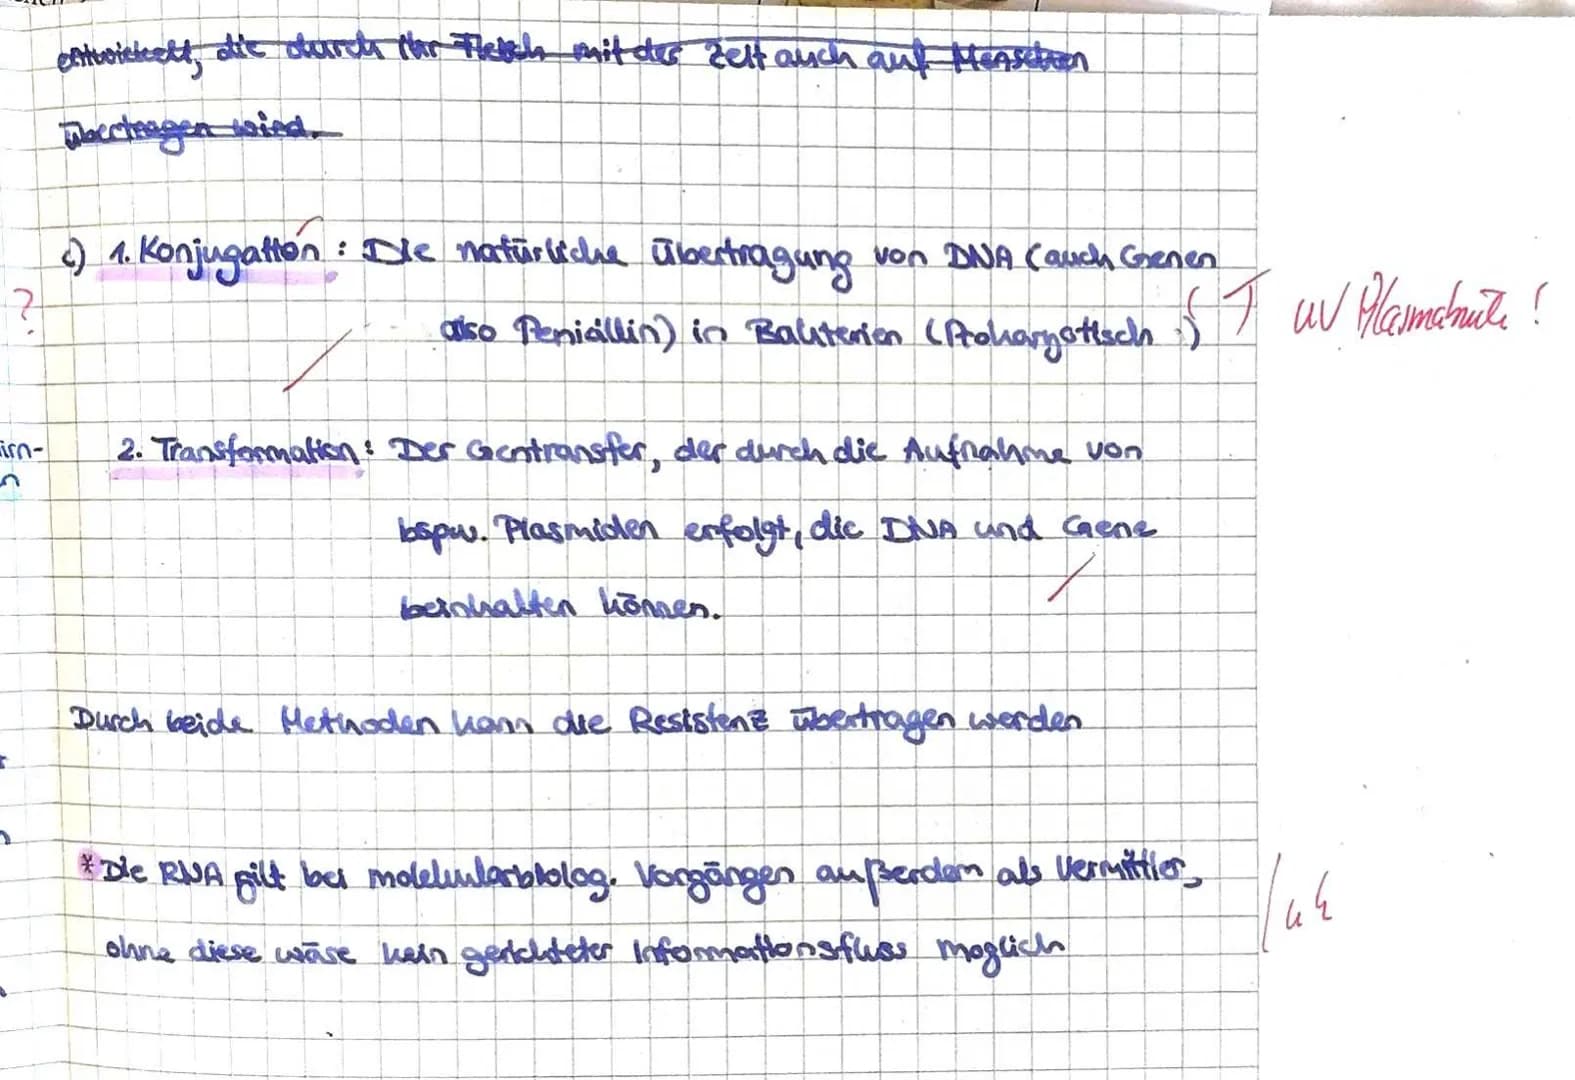 entwickelt, die durch ihr Fleisch mit der Zeit auch auf Menschen
übertragen wird.
c) 1. Konjugation: Die natürliche Übertragung von DNA (auch Genen
?
also Penicillin) in Bakterien (Prokaryotisch :)
uv Plasmabrücke!
2. Transformation: Der Gentransfer, der durch die Aufnahme von
bspw. Plasmiden erfolgt, die DNA und Gene
beinhalten können.
Durch beide Methoden kann die Resistenz übertragen werden
*Die RNA gilt bei molekularbiolog. Vorgängen außerdem als Vermittler,
ohne diese wäre kein gerichteter Informationsfluss möglich